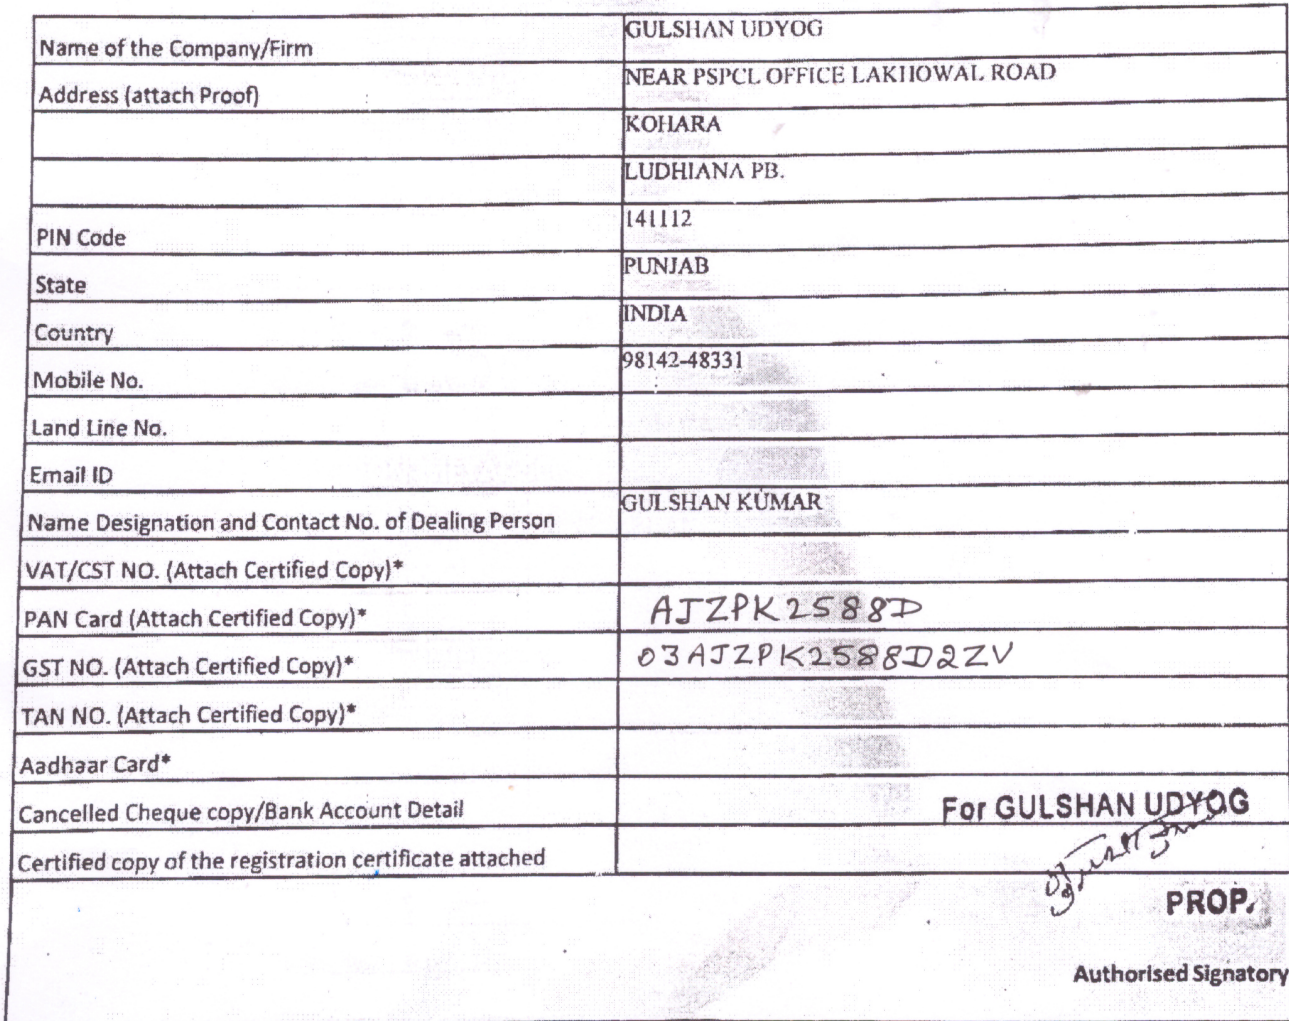 Name of the Company/Firm GULSHAN UDYOG
Address (attach Proof) NEAR PSPCL OFFICE LAKHOWAL ROAD
KOHARA
LUDHIANA PB.
PIN Code 141112
State PUNJAB
Country INDIA
Mobile No. 98142-48331
Land Line No.
Email ID
Name Designation and Contact No. of Dealing Person GULSHAN KUMAR
VAT/CST NO. (Attach Certified Copy)*
PAN Card (Attach Certified Copy)* AJZPK2588D
GST NO. (Attach Certified Copy)* 03AJZPK2588D2ZV
TAN NO. (Attach Certified Copy)*
Aadhaar Card*
Cancelled Cheque copy/Bank Account Detail
For GULSHAN UDYOG
Certified copy of the registration certificate attached
PROP.
Authorised Signatory